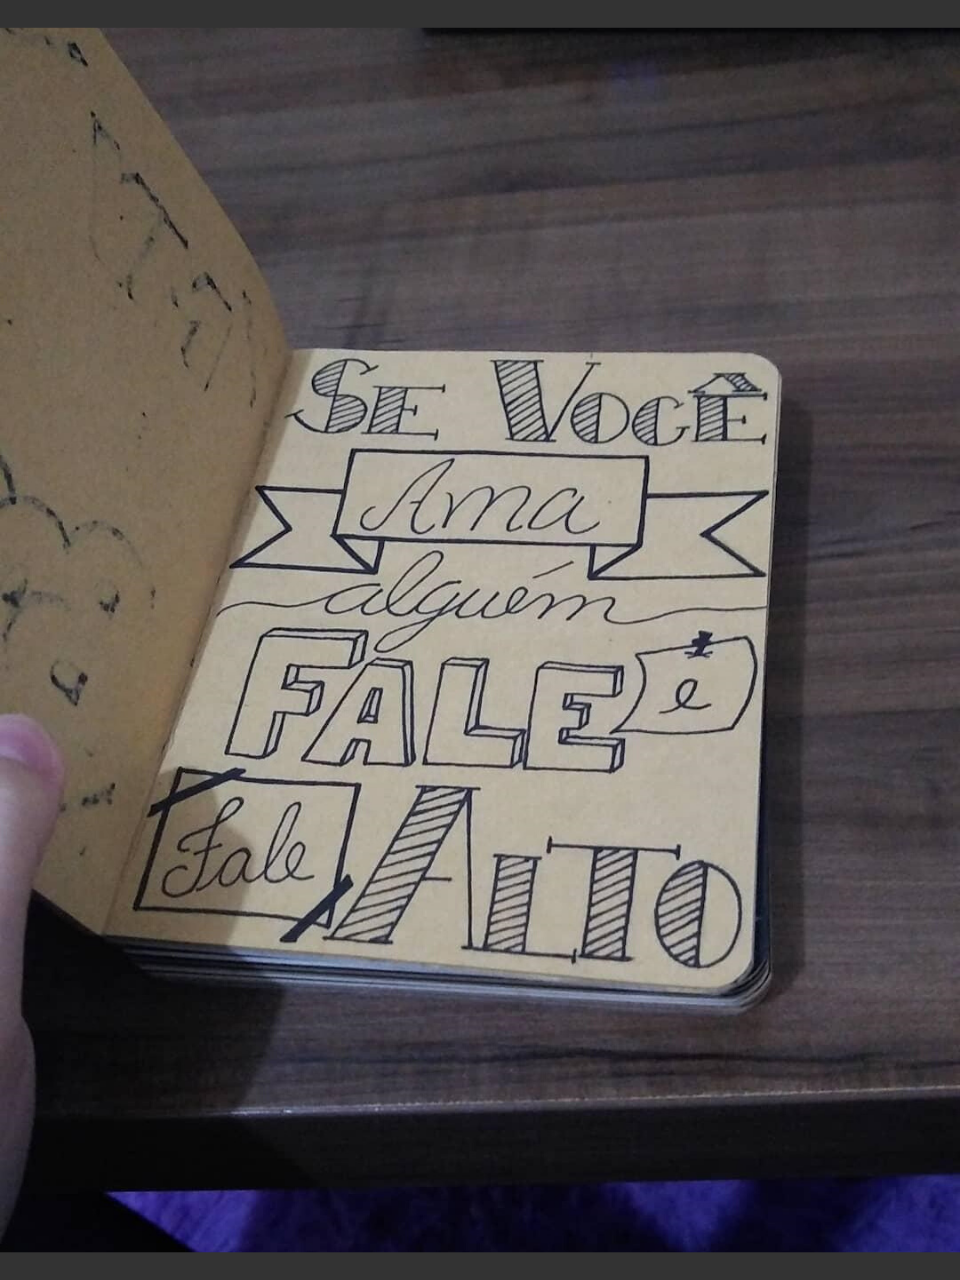 SE VOCÊ
Ama
alguém
FALE e
Fale ALTO